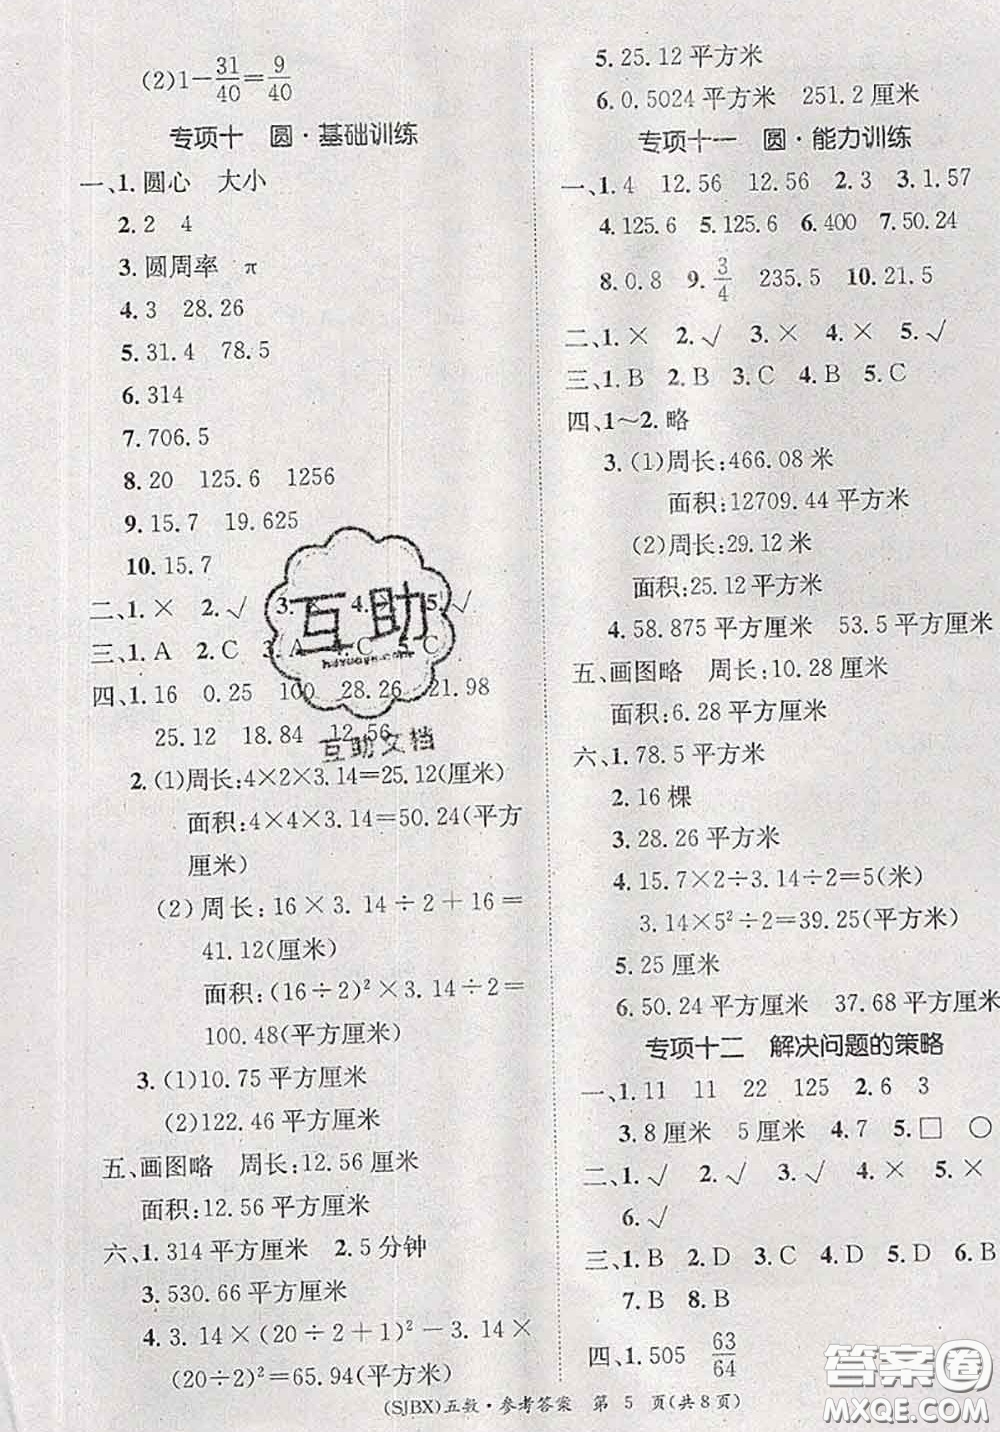 (2)1−31/40=9/40
专项十　圆·基础训练
一、1.圆心　大小
2.2　4
3.圆周率　π
4.3　28.26
5.31.4　78.5
6.314
7.706.5
8.20　125.6　1256
9.15.7　19.625
10.15.7
二、1.×　2.√　3.　4.　5.√
三、1.A　2.C　3.A　4.C　5.C
四、1.16　0.25　100　28.26　21.98
25.12　18.84　12.56
2.(1)周长:4×2×3.14=25.12(厘米)
面积:4×4×3.14=50.24(平方
厘米)
(2)周长:16×3.14÷2+16=
41.12(厘米)
面积:(16÷2)²×3.14÷2=
100.48(平方厘米)
3.(1)10.75平方厘米
(2)122.46平方厘米
五、画图略　周长:12.56厘米
面积:12.56平方厘米
六、1.314平方厘米　2.5分钟
3.530.66平方厘米
4.3.14×(20÷2+1)²−3.14×
(20÷2)²=65.94(平方米)
5.25.12平方米
6.0.5024平方米　251.2厘米
专项十一　圆·能力训练
一、1.4　12.56　12.56　2.3　3.1.57
4.125.6　5.125.6　6.400　7.50.24
8.0.8　9.3/4　235.5　10.21.5
二、1.×　2.√　3.×　4.×　5.√
三、1.B　2.B　3.C　4.B　5.C
四、1~2.略
3.(1)周长:466.08米
面积:12709.44平方米
(2)周长:29.12米
面积:25.12平方米
4.58.875平方厘米　53.5厘米
五、画图略　周长:10.28厘米
面积:6.28平方厘米
六、1.78.5平方米
2.16棵
3.28.26平方米
4.15.7×2÷3.14÷2=5(米)
3.14×5²÷2=39.25(平方米)
5.25厘米
6.50.24平方厘米　37.68平方厘米
专项十二　解决问题的策略
一、1.11　11　22　125　2.6　3
3.8厘米　5厘米　4.7　5.□　○
二、1.√　2.√　3.√　4.×　5.×
6.√
三、1.B　2.D　3.C　4.D　5.D　6.B
7.B　8.B
四、1.505　63/64
(SJBX)五数·参考答案　第 5 页(共8页)
互助
互助文档
答案圈
MXQE.COM